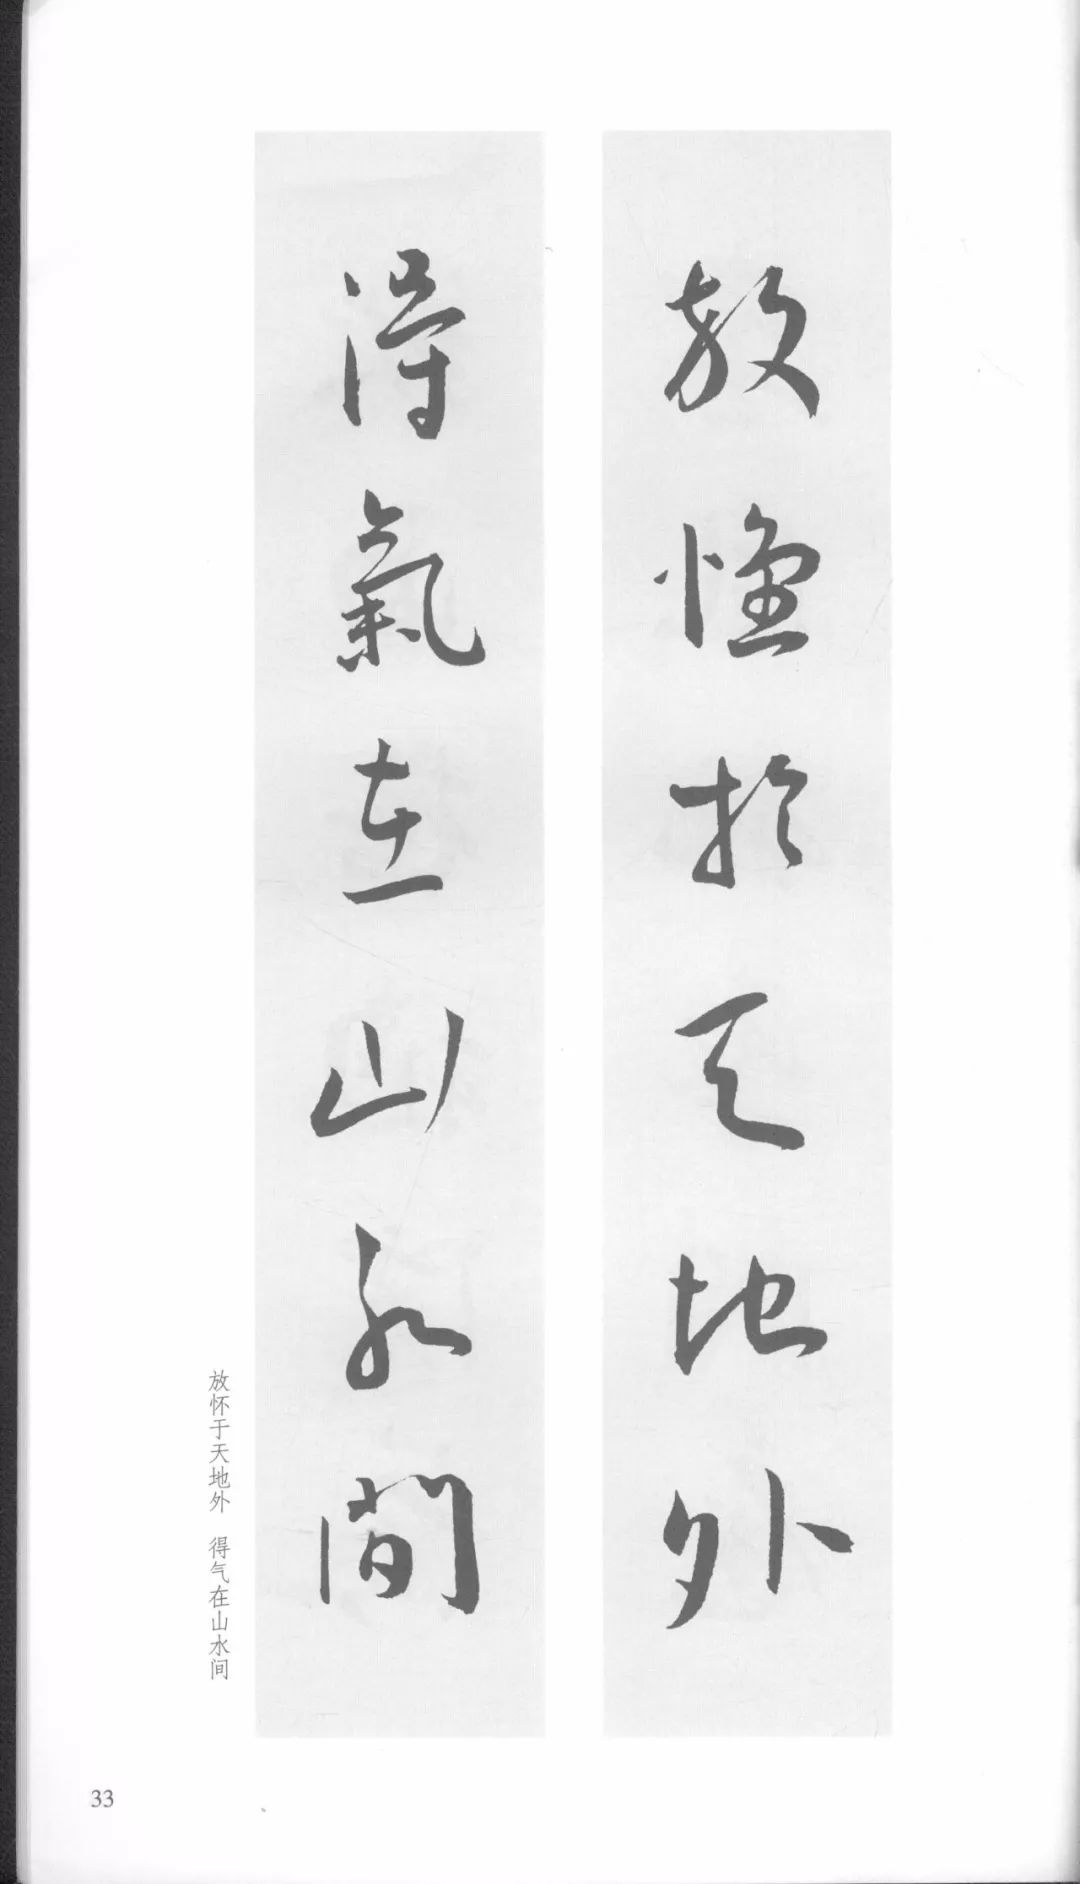 放懷於天地外
得氣在山水間
放怀于天地外 得气在山水间
33